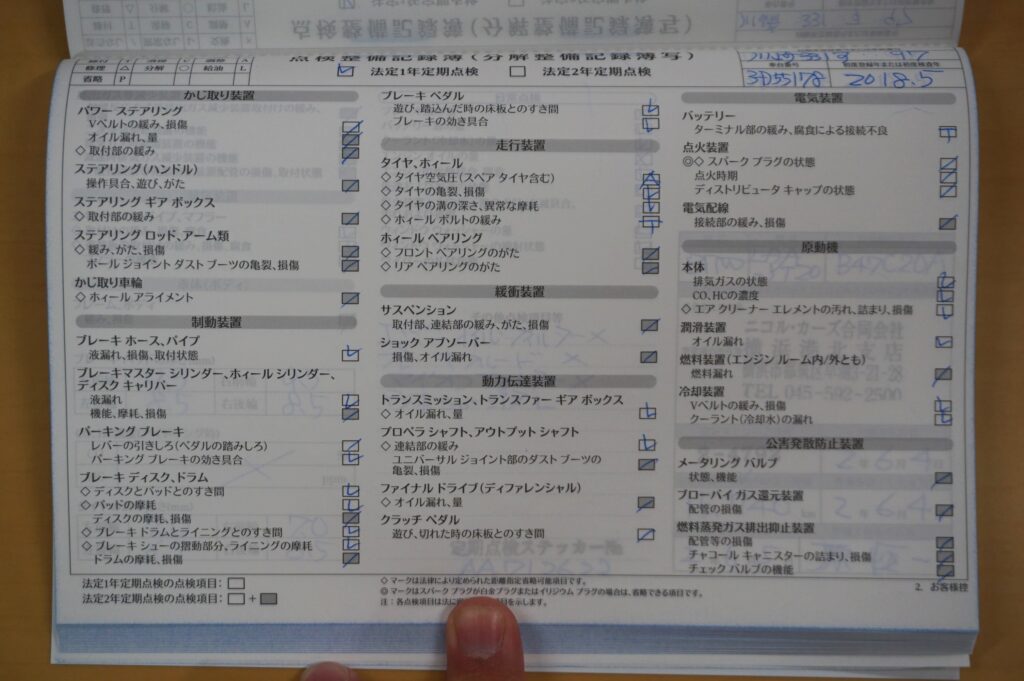 点検整備記録簿(分解整備記録簿写)
修理 △ 分解 ○ 給油 L
省略 P
法定1年定期点検 法定2年定期点検
車台番号 初度登録年または初度検査年
3D55178 2018.5
かじ取り装置
パワー ステアリング
Vベルトの緩み、損傷
オイル漏れ、量
◇ 取付部の緩み
ステアリング(ハンドル)
操作具合、遊び、がた
ステアリング ギア ボックス
◇ 取付部の緩み
ステアリング ロッド、アーム類
◇ 緩み、がた、損傷
ボール ジョイント ダスト ブーツの亀裂、損傷
かじ取り車輪
◇ ホィール アライメント
制動装置
ブレーキ ホース、パイプ
液漏れ、損傷、取付状態
ブレーキマスター シリンダー、ホィール シリンダー、
ディスク キャリパー
液漏れ
機能、摩耗、損傷
パーキング ブレーキ
レバーの引きしろ(ペダルの踏みしろ)
パーキング ブレーキの効き具合
ブレーキ ディスク、ドラム
◇ ディスクとパッドとのすき間
◇ パッドの摩耗
ディスクの摩耗、損傷
◇ ブレーキ ドラムとライニングとのすき間
◇ ブレーキ シューの摺動部分、ライニングの摩耗
ドラムの摩耗、損傷
ブレーキ ペダル
遊び、踏込んだ時の床板とのすき間
ブレーキの効き具合
走行装置
タイヤ、ホィール
◇ タイヤ空気圧(スペア タイヤ含む)
◇ タイヤの亀裂、損傷
◇ タイヤの溝の深さ、異常な摩耗
◇ ホィール ボルトの緩み
ホィール ベアリング
◇ フロント ベアリングのがた
◇ リア ベアリングのがた
緩衝装置
サスペンション
取付部、連結部の緩み、がた、損傷
ショック アブソーバー
損傷、オイル漏れ
動力伝達装置
トランスミッション、トランスファー ギア ボックス
◇ オイル漏れ、量
プロペラ シャフト、アウトプット シャフト
◇ 連結部の緩み
ユニバーサル ジョイント部のダスト ブーツの
亀裂、損傷
ファイナル ドライブ(ディファレンシャル)
◇ オイル漏れ、量
クラッチ ペダル
遊び、切れた時の床板とのすき間
電気装置
バッテリー
ターミナル部の緩み、腐食による接続不良
点火装置
◎◇ スパーク プラグの状態
点火時期
ディストリビュータ キャップの状態
電気配線
接続部の緩み、損傷
原動機
本体
排気ガスの状態
CO、HCの濃度
◇ エア クリーナー エレメントの汚れ、詰まり、損傷
潤滑装置
オイル漏れ
燃料装置(エンジン ルーム内/外とも)
燃料漏れ
冷却装置
Vベルトの緩み、損傷
クーラント(冷却水)の漏れ
公害発散防止装置
メータリング バルブ
状態、機能
ブローバイ ガス還元装置
配管の損傷
燃料蒸発ガス排出抑止装置
配管等の損傷
チャコール キャニスターの詰まり、損傷
チェック バルブの機能
法定1年定期点検の点検項目:
法定2年定期点検の点検項目: +
◇ マークは法律により定められた距離指定省略可能項目です。
◎ マークはスパーク プラグが白金プラグまたはイリジウム プラグの場合は、省略できる項目です。
注:各点検項目は法に 項目を示します。
2. お客様控